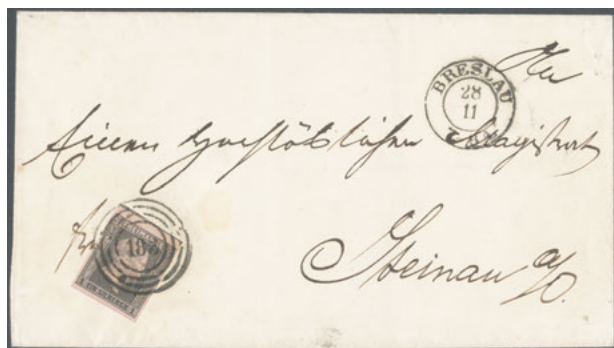 An
BRESLAU
28
11
Einen Hochlöblichen Magistrat
Steinau a/O.